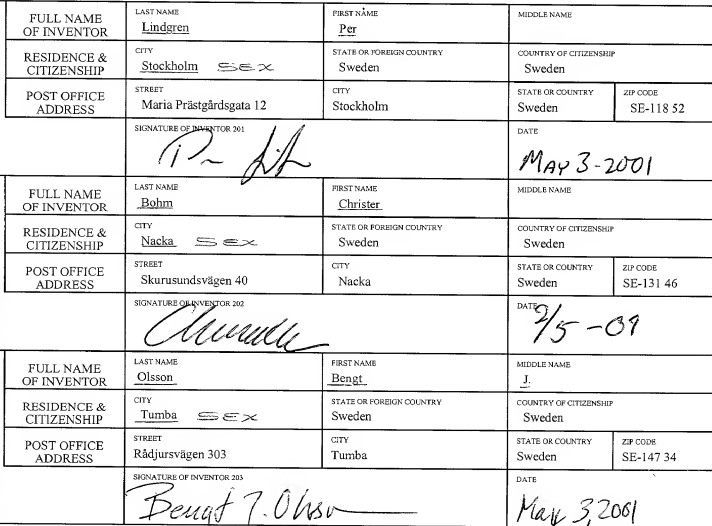 FULL NAME OF INVENTOR
LAST NAME
Lindgren
FIRST NAME
Per
MIDDLE NAME
RESIDENCE & CITIZENSHIP
CITY
Stockholm SEX
STATE OR FOREIGN COUNTRY
Sweden
COUNTRY OF CITIZENSHIP
Sweden
POST OFFICE ADDRESS
STREET
Maria Prästgårdsgata 12
CITY
Stockholm
STATE OR COUNTRY
Sweden
ZIP CODE
SE-118 52
SIGNATURE OF INVENTOR 201
DATE
MAY 3-2001
FULL NAME OF INVENTOR
LAST NAME
Bohm
FIRST NAME
Christer
MIDDLE NAME
RESIDENCE & CITIZENSHIP
CITY
Nacka SEX
STATE OR FOREIGN COUNTRY
Sweden
COUNTRY OF CITIZENSHIP
Sweden
POST OFFICE ADDRESS
STREET
Skurusundsvägen 40
CITY
Nacka
STATE OR COUNTRY
Sweden
ZIP CODE
SE-131 46
SIGNATURE OF INVENTOR 202
DATE
FULL NAME OF INVENTOR
LAST NAME
Olsson
FIRST NAME
Bengt
MIDDLE NAME
J.
RESIDENCE & CITIZENSHIP
CITY
Tumba SEX
STATE OR FOREIGN COUNTRY
Sweden
COUNTRY OF CITIZENSHIP
Sweden
POST OFFICE ADDRESS
STREET
Rådjursvägen 303
CITY
Tumba
STATE OR COUNTRY
Sweden
ZIP CODE
SE-147 34
SIGNATURE OF INVENTOR 203
Bengt J. Olsson
DATE
May 3, 2001